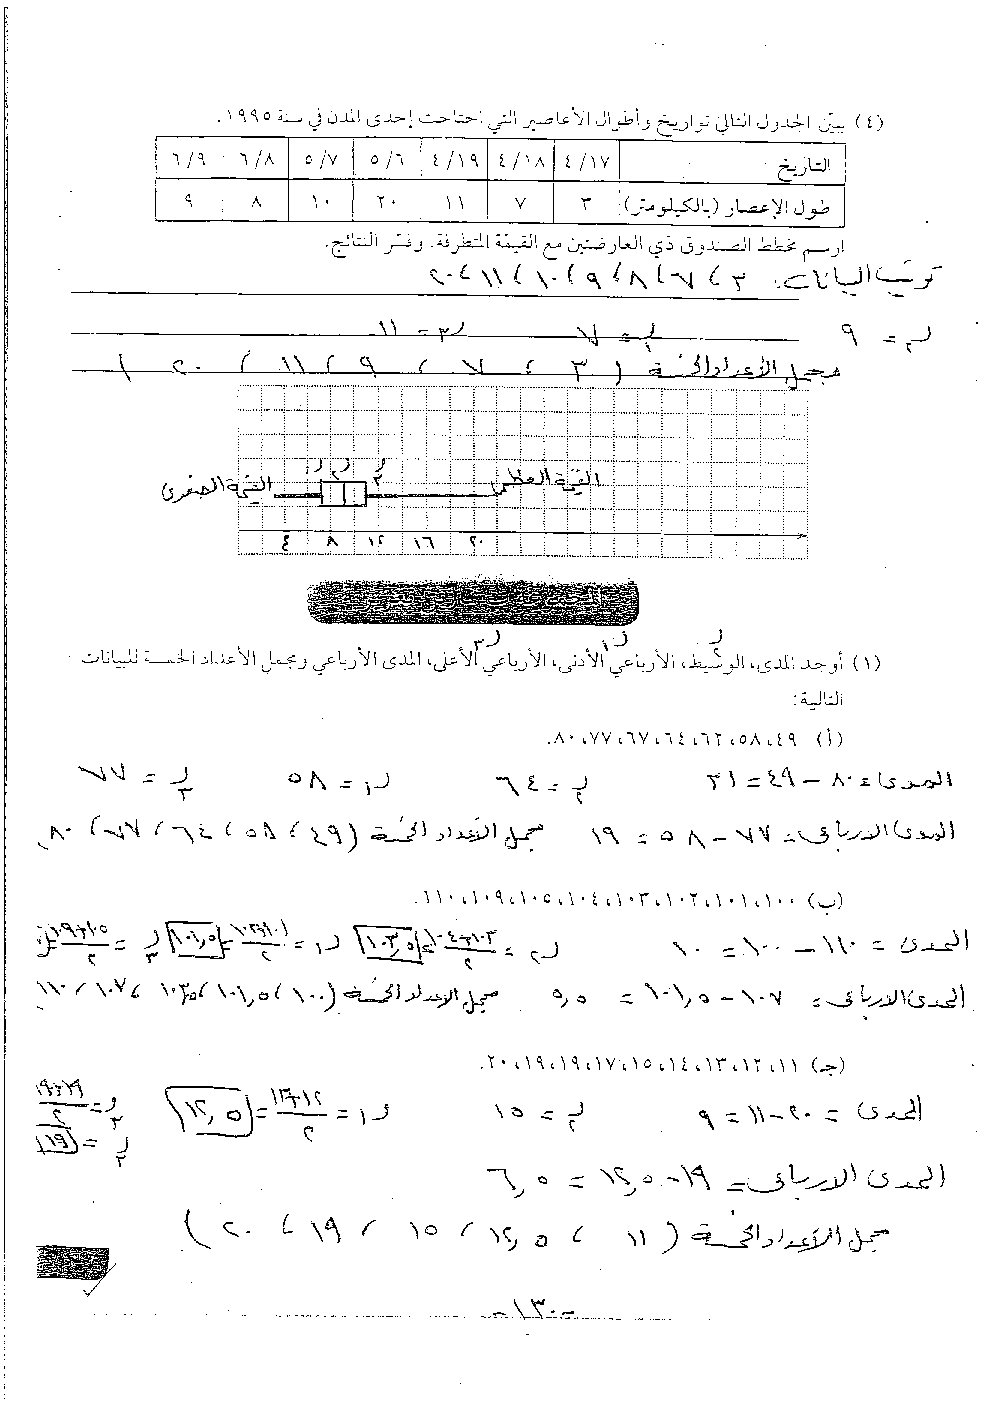 (٤) يبيّن الجدول التالي تواريخ وأطوال الأعاصير التي اجتاحت إحدى المدن في سنة ١٩٩٥.
التاريخ ٤/١٧ ٤/١٨ ٤/١٩ ٥/٦ ٥/٧ ٦/٨ ٦/٩
طول الإعصار (بالكيلومتر) ٣ ٧ ١١ ٢٠ ١٠ ٨ ٩
ارسم مخطط الصندوق ذي العارضتين مع القيمة المتطرفة. وفسّر النتائج.
ترتيب البيانات: ٣، ٧، ٨، ٩، ١٠، ١١، ٢٠
ر٢ = ٩ ر١ = ٧ ر٣ = ١١
مجمل الأعداد الخمسة (٣، ٧، ٩، ١١، ٢٠)
ر١ ر٢ ر٣
القيمة الصغرى القيمة العظمى
٤ ٨ ١٢ ١٦ ٢٠
ر٢ ر١ ر٣
(١) أوجد المدى، الوسيط، الأرباعي الأدنى، الأرباعي الأعلى، المدى الأرباعي ومجمل الأعداد الخمسة للبيانات
التالية:
(أ) ٤٩، ٥٨، ٦٢، ٦٤، ٦٧، ٧٧، ٨٠.
المدى = ٨٠ - ٤٩ = ٣١ ر٢ = ٦٤ ر١ = ٥٨ ر٣ = ٧٧
المدى الارباعي = ٧٧ - ٥٨ = ١٩ مجمل الأعداد الخمسة (٤٩، ٥٨، ٦٤، ٧٧، ٨٠)
(ب) ١٠٠، ١٠١، ١٠٢، ١٠٣، ١٠٤، ١٠٥، ١٠٩، ١١٠.
المدى = ١١٠ - ١٠٠ = ١٠ ر٢ = ١٠٣+١٠٤/٢ = ١٠٣,٥ ر١ = ١٠١+١٠٢/٢ = ١٠١,٥ ر٣ = ١٠٥+١٠٩/٢ =
المدى الارباعي = ١٠٧ - ١٠١,٥ = ٥,٥ مجمل الأعداد الخمسة (١٠٠، ١٠١,٥، ١٠٣,٥، ١٠٧، ١١٠
(جـ) ١١، ١٢، ١٣، ١٤، ١٥، ١٧، ١٩، ١٩، ٢٠.
المدى = ٢٠ - ١١ = ٩ ر٢ = ١٥ ر١ = ١٢+١٣/٢ = ١٢,٥ ر٣ = ١٩+١٩/٢
ر٣ = ١٩
المدى الارباعي = ١٩ - ١٢,٥ = ٦,٥
مجمل الأعداد الخمسة (١١، ١٢,٥، ١٥، ١٩، ٢٠)
-١٣٠-